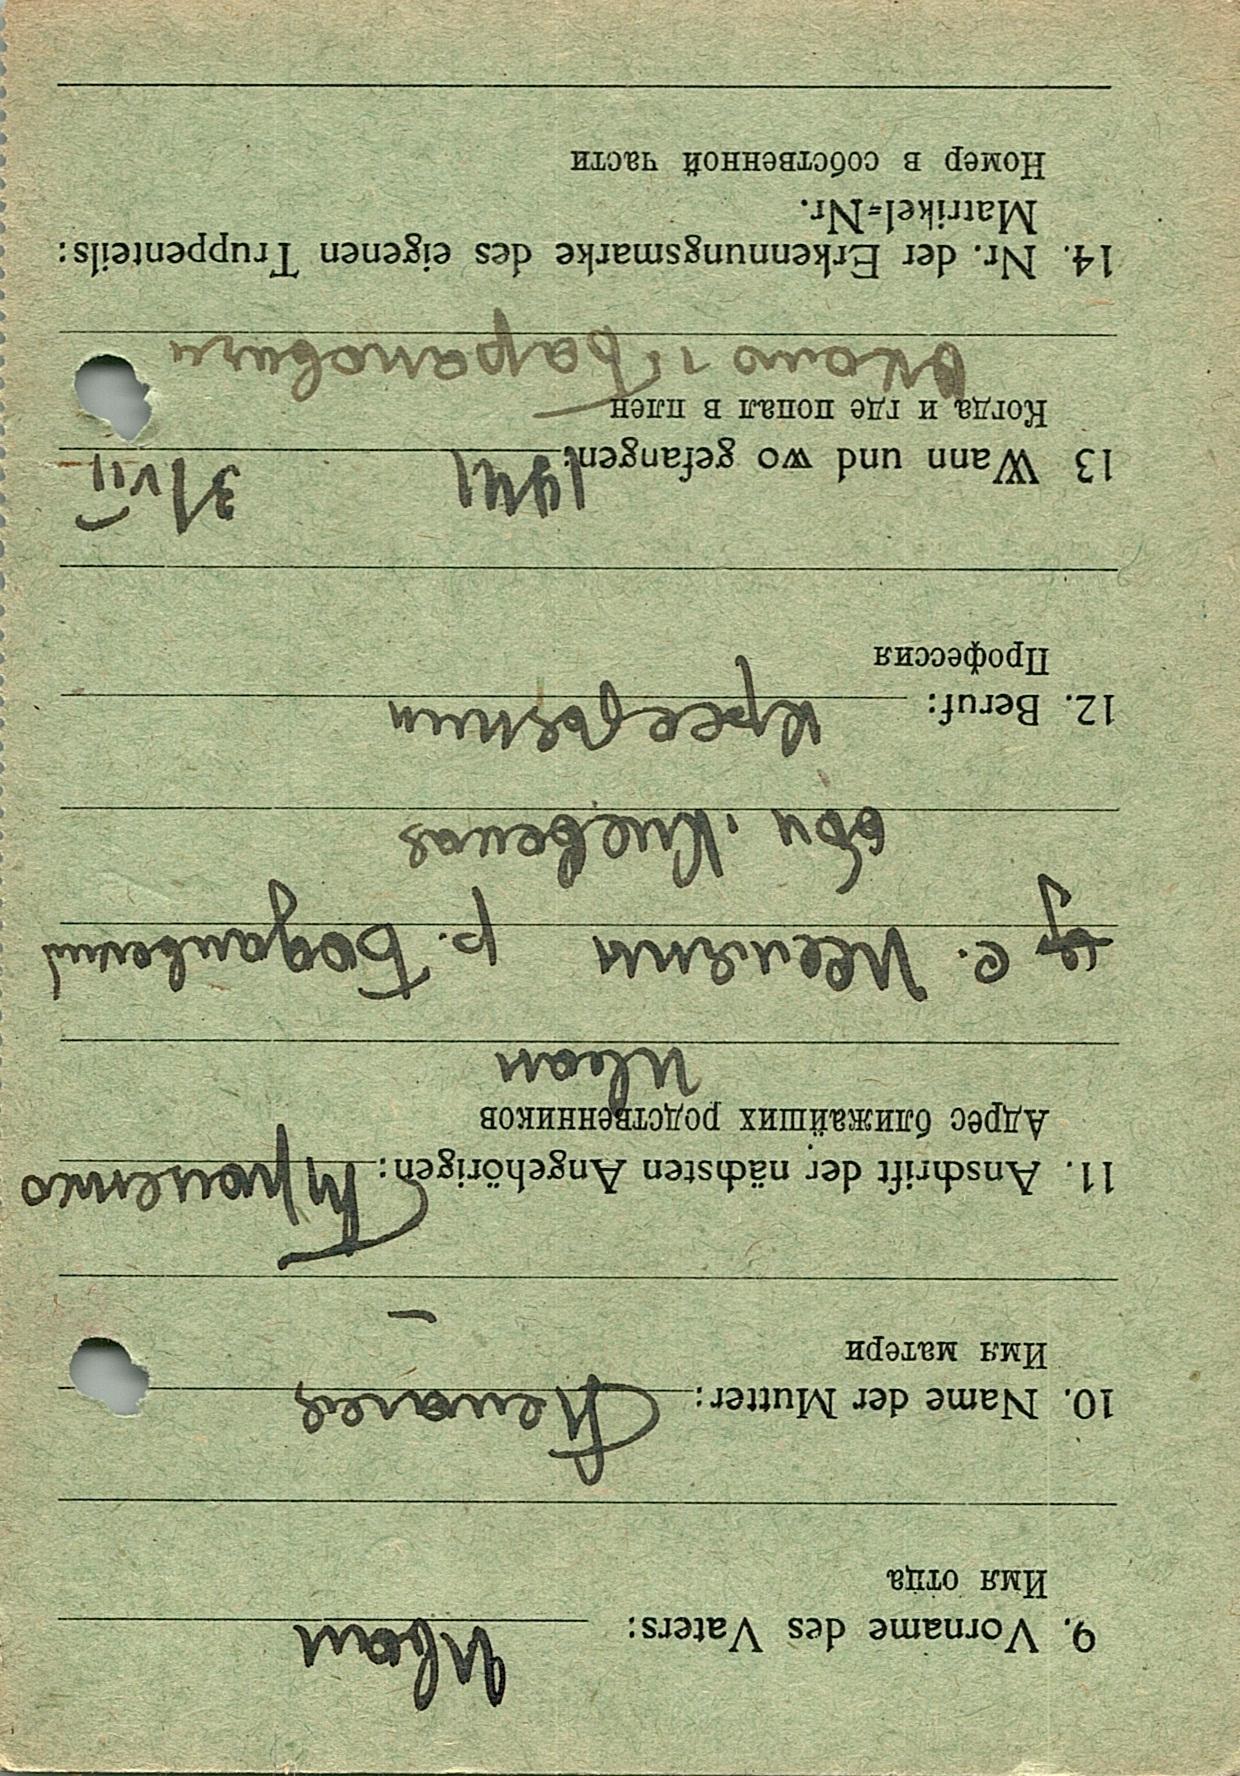 9. Vorname des Vaters: Иван
Имя отца
10. Name der Mutter:
Имя матери
—
11. Anschrift der nächsten Angehörigen:
Адрес ближайших родственников
Иван
с. р.
обл. Киевская
12. Beruf:
Профессия
13 Wann und wo gefangen: 1941 31 VII
Когда и где попал в плен
около г. Барановичи
14. Nr. der Erkennungsmarke des eigenen Truppenteils:
Matrikel=Nr.
Номер в собственной части